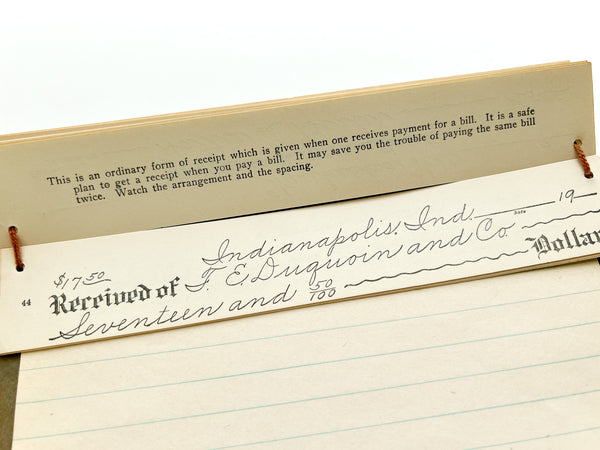 This is an ordinary form of receipt which is given when one receives payment for a bill. It is a safe
plan to get a receipt when you pay a bill. It may save you the trouble of paying the same bill
twice. Watch the arrangement and the spacing.
Indianapolis, Ind. 19
Date
$17 50
44 Received of F. E. Duquoin and Co.
Seventeen and 50/100 Dollar